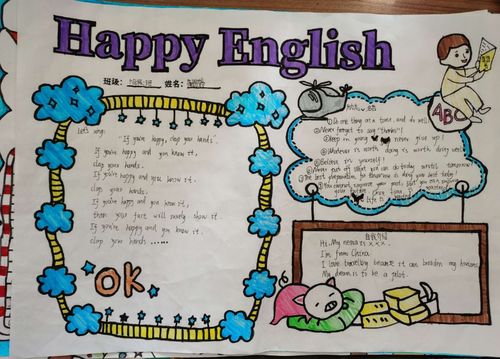 Happy English
班级: 姓名:
Let's sing:
"If you're happy, clap your hands"
If you're happy and you know it,
clap your hands.
If you're happy and you know it.
clap your hands.
If you're happy and you know it,
then your face will surely show it.
If you're happy and you know it.
clap your hands ......
OK
ABC
Do one thing at a time, and do well.
Never forget to say "thanks"!
Keep on going never give up!
Whatever is worth doing is worth doing well.
Believe in yourself!
Never put off what you can do today until tomorrow!
The best preparation for tomorrow is doing your best today!
You cannot improve your past, but you can improve
your future. Once time is wasted,
life is wasted.
自我介绍
Hi. My name is x x x.
I'm from China.
I love travelling because it can broaden my horizons.
My dream is to be a pilot.